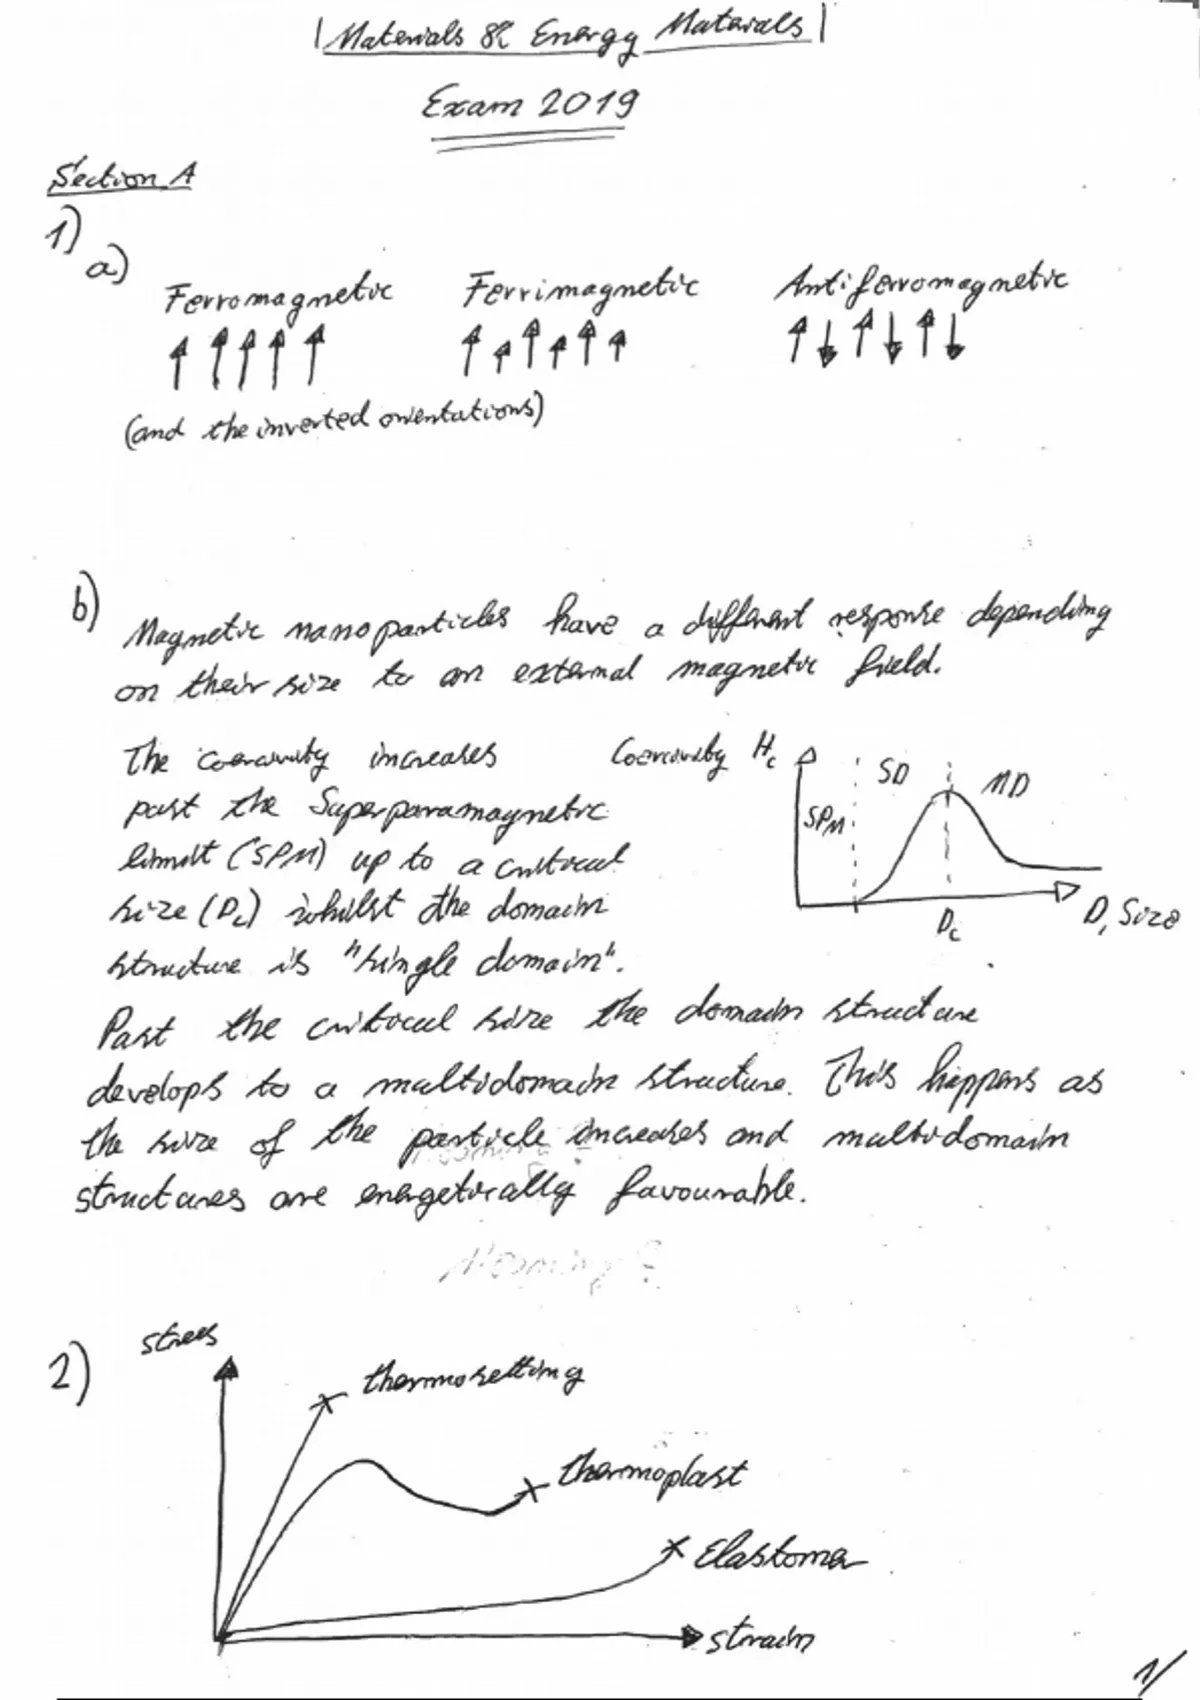 Materials & Energy Materials
Exam 2019
Section A
1)
a)
Ferromagnetic Ferrimagnetic Antiferromagnetic
(and the inverted orientations)
b)
Magnetic nanoparticles have a different response depending
on their size to an external magnetic field.
The coercivity increases
past the Superparamagnetic
limit (SPM) up to a critical
size (Dc) whilst the domain
structure is "single domain".
Coercivity Hc
SPM
SD
MD
Dc
D, Size
Past the critical size the domain structure
develops to a multidomain structure. This happens as
the size of the particle increases and multidomain
structures are energetically favourable.
2)
stress
thermosetting
thermoplast
Elastomer
strain
1/